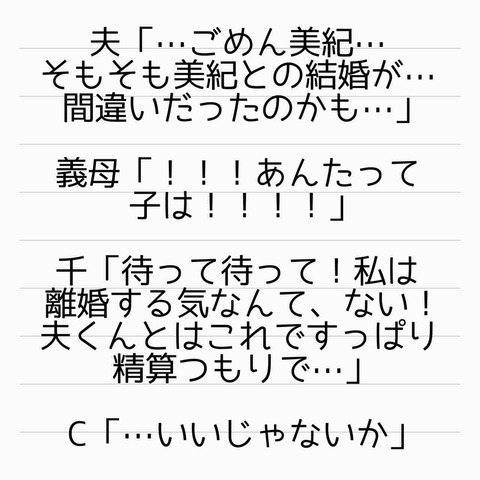 夫「…ごめん美紀…
そもそも美紀との結婚が…
間違いだったのかも…」
義母「！！！あんたって
子は！！！！」
千「待って待って！私は
離婚する気なんて、ない！
夫くんとはこれですっぱり
精算つもりで…」
C「…いいじゃないか」